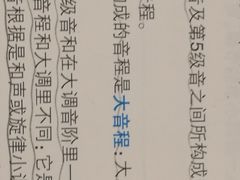 及第5级音之间所构成
音程。
构成的音程是大音程；大
级音和在大调音阶里一
音程和大调里不同；它是
根据是和声或旋律小